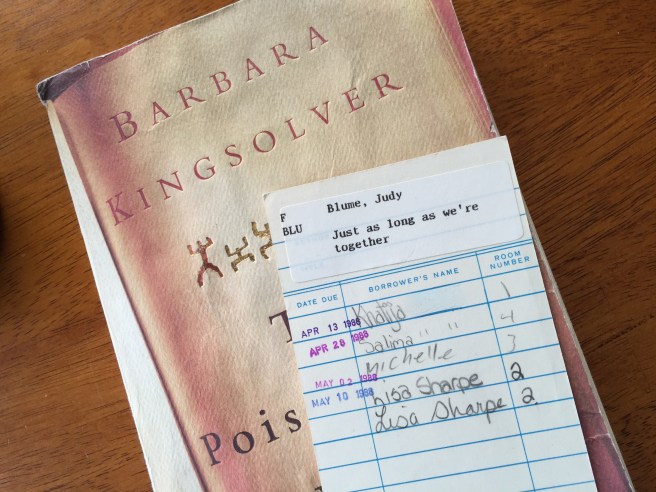 BARBARA
KINGSOLVER
T
Pois
F Blume, Judy
BLU Just as long as we're
together
DATE DUE BORROWER'S NAME ROOM NUMBER
APR 13 1988 Khatija 1
APR 26 1988 Salima " " 4
MAY 02 1988 Michelle 3
MAY 10 1988 Lisa Sharpe 2
Lisa Sharpe 2